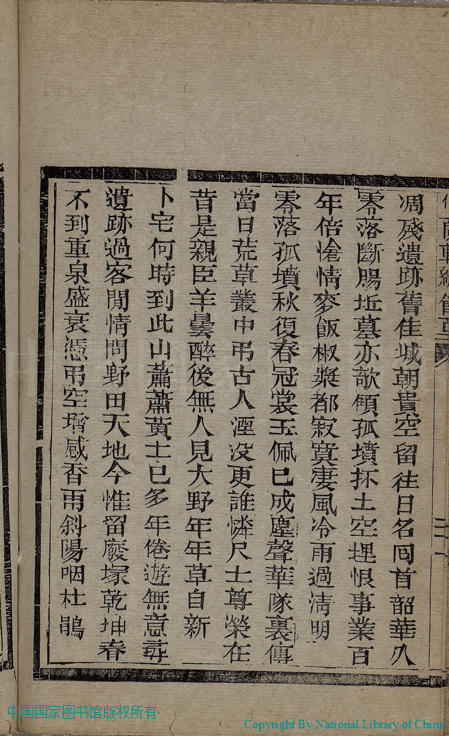 凋殘遺跡舊佳城朝貴空留往日名囘首韶華久
零落斷腸坵墓亦欹傾孤墳抔土空埋恨事業百
年倍愴情麥飯椒漿都寂寞淒風冷雨過清明
零落孤墳秋復春冠裳玉佩已成塵聲華隊裏傳
當日荒草叢中弔古人湮沒更誰憐尺土尊榮在
昔是親臣羊曇醉後無人見大野年年草自新
卜宅何時到此山蕭蕭黃土已多年倦遊無意尋
遺跡過客閒情問野田天地今惟留廢塚乾坤春
不到重泉盛衰憑弔空增感杏雨斜陽咽杜鵑
中国国家图书馆版权所有
Copyright By National Library of China